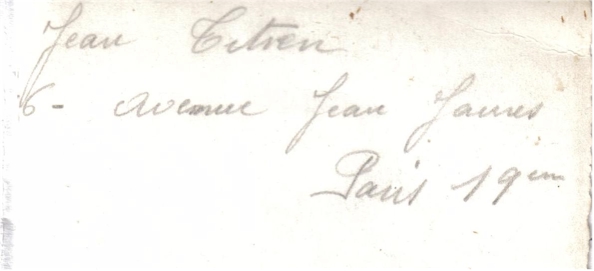 Jean
6- avenue Jean Jaures
Paris 19em